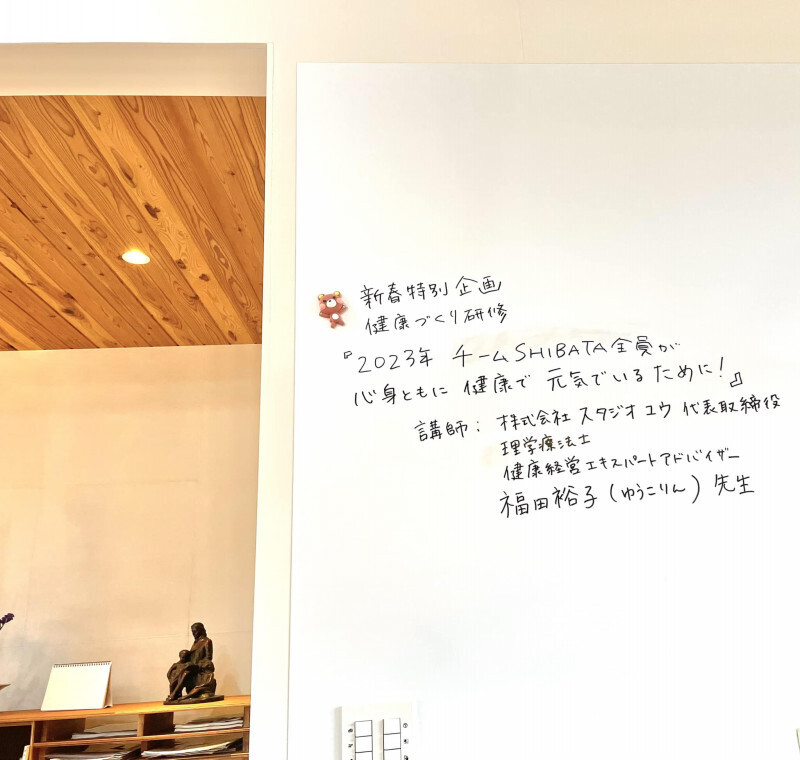 新春特別企画
健康づくり研修
『2023年 チームSHIBATA全員が
心身ともに 健康で 元気でいるために!』
講師: 株式会社 スタジオユウ 代表取締役
理学療法士
健康経営エキスパートアドバイザー
福田裕子(ゆうこりん)先生